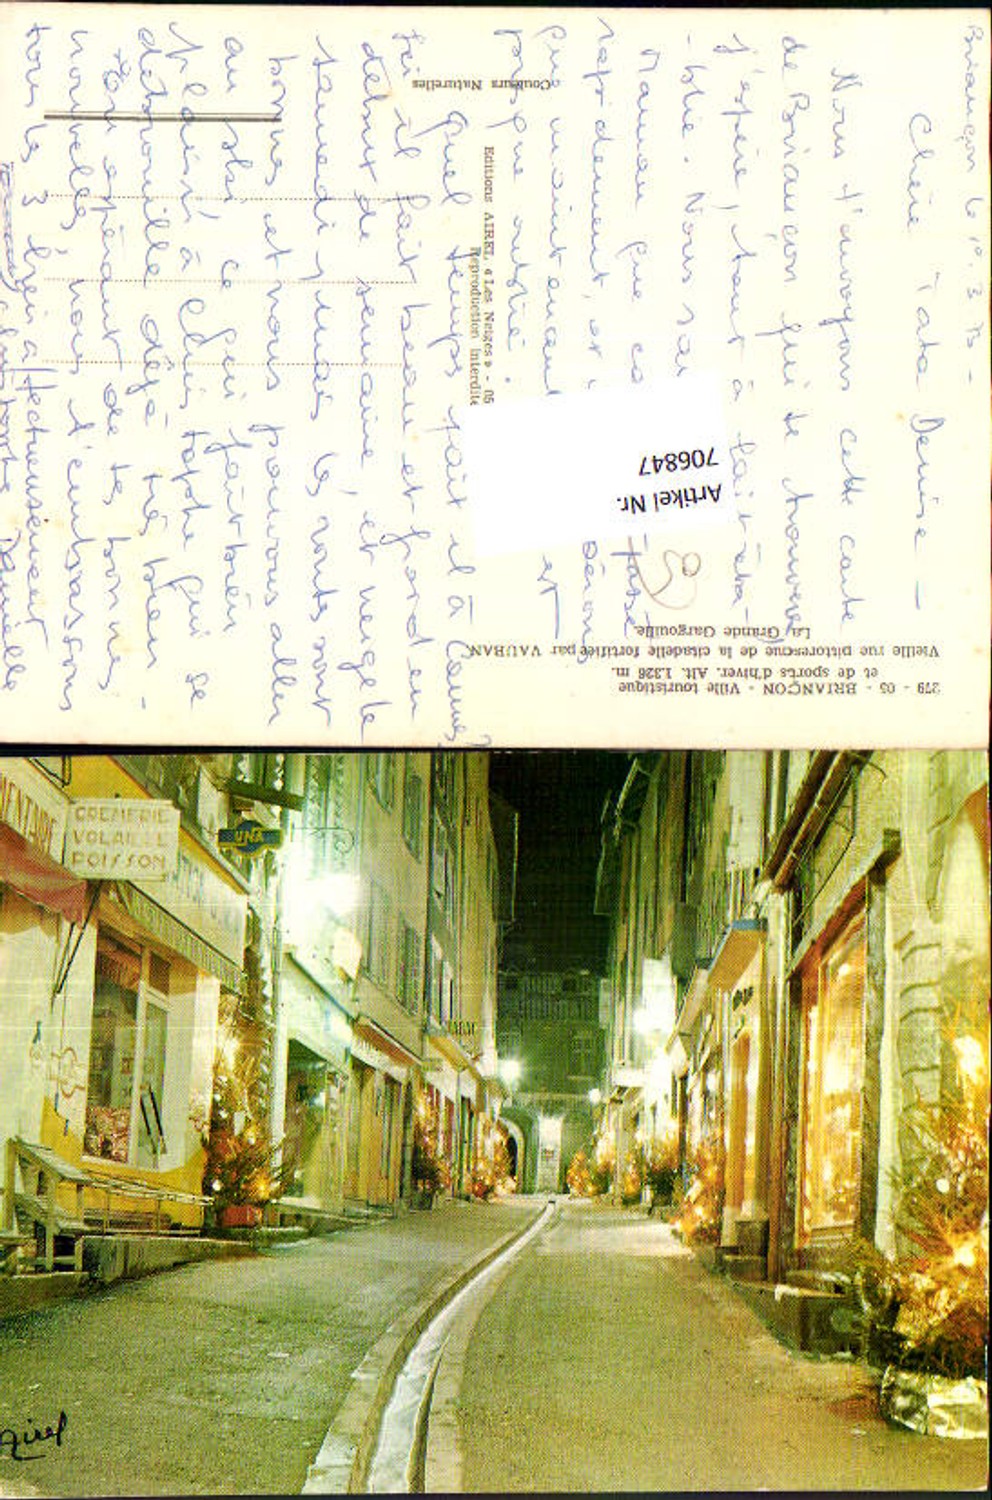 Briançon le 10.3.73 -
Chère Tata Denise -
Nous t'envoyons cette carte
de Briançon qui te trouvera
j'espère, tout à fait réta-
-blie. Nous
Maman que passé
rapidement, et
maintenant est
presque oublié.
Quel temps fait il à Cannes?
Ici il fait beau et froid en
début de semaine, et neige le
samedi, mais les routes sont
bonnes et nous pouvons aller
au ski ce qui fait bien
plaisir à qui se
débrouille déjà très bien -
En espérant de tes bonnes
nouvelles, nous t'embrassons
tous les 3 bien affectueusement
Danielle
Couleurs Naturelles
Editions AIREL « Les Neiges » - 05
Reproduction Interdite
Artikel Nr.
706847
279 - 05 - BRIANÇON - Ville touristique
et de sports d'hiver. Alt. 1.326 m.
Vieille rue pittoresque de la citadelle fortifiée par VAUBAN.
La Grande Gargouille.
MENTAIRE
CREMERIE
VOLAILLE
POISSON
UNA
Airel